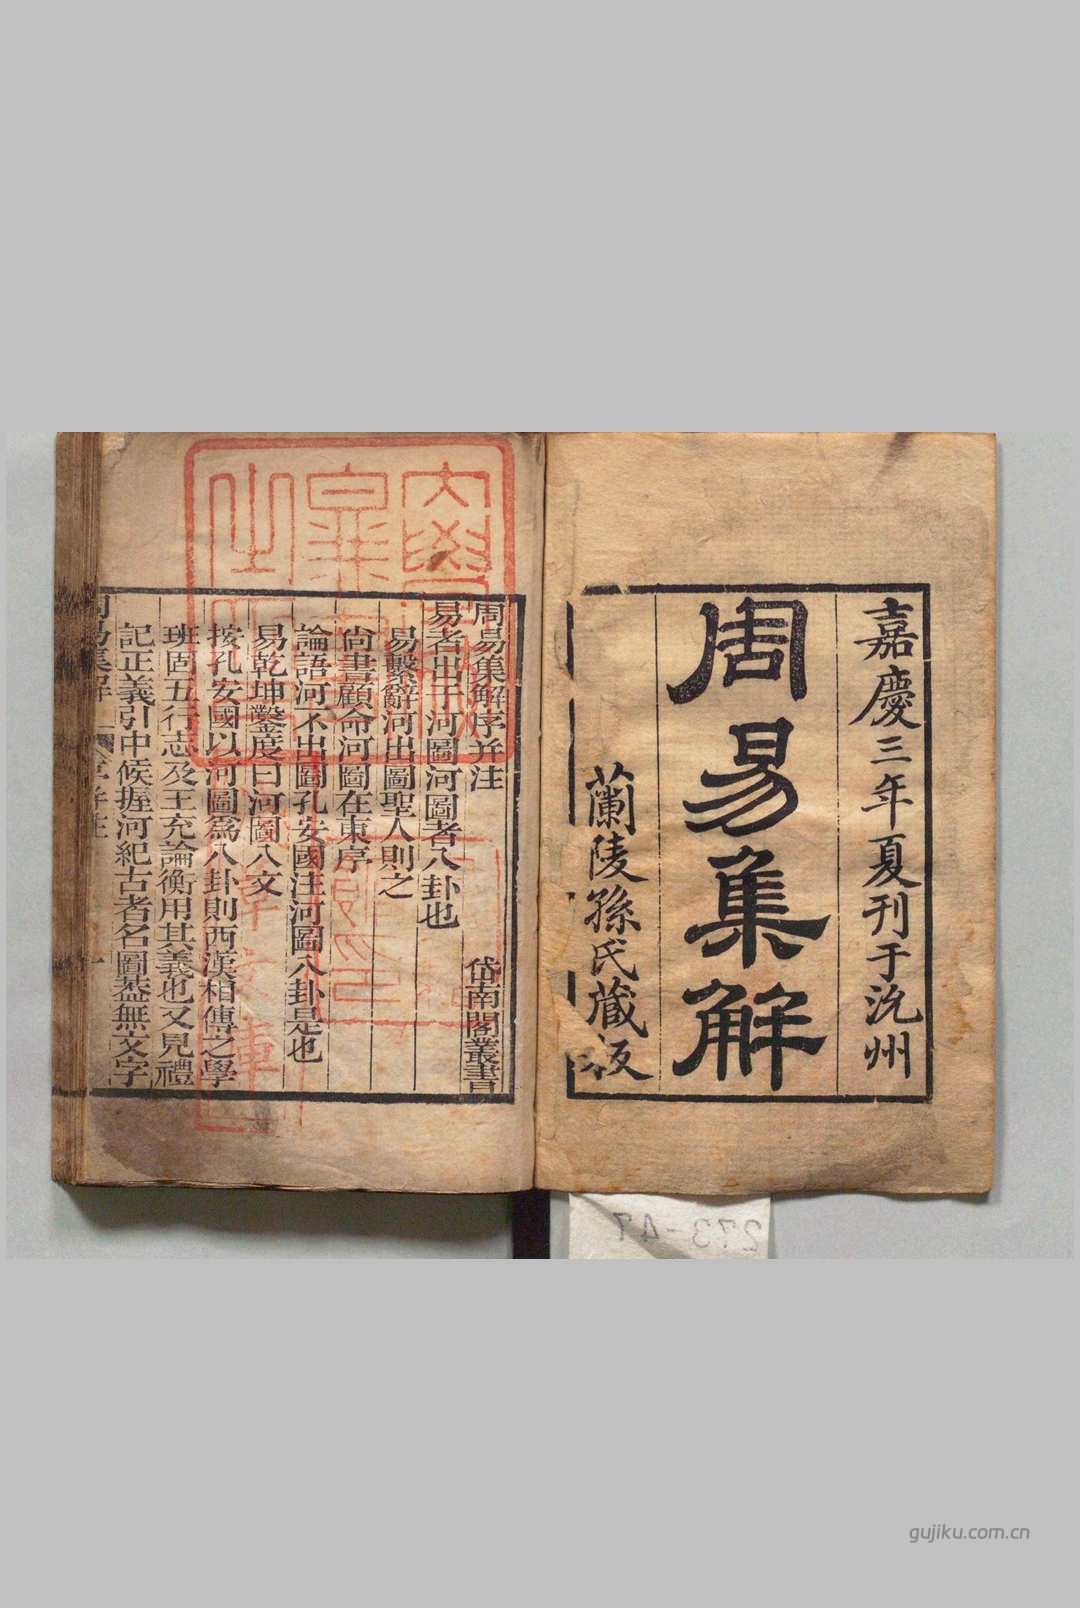 嘉慶三年夏刊于沇州
周易集解
蘭陵孫氏藏板
周易集解序并注　岱南閣叢書
易者出于河圖河圖者八卦也
易繫辭河出圖聖人則之
尙書顧命河圖在東序
論語河不出圖孔安國注河圖八卦是也
易乾坤鑿度曰河圖八文
按孔安國以河圖爲八卦則西漢相傳之學
班固五行志及王充論衡用其義也又見禮
記正義引中候握河紀古者名圖葢無文字
周易集解
273-47
gujiku.com.cn